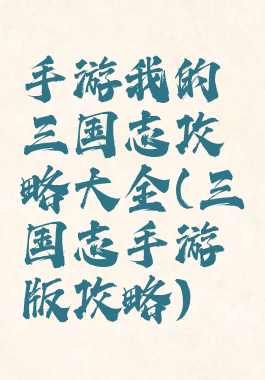 手游我的
三国志攻
略大全(三
国志手游
版攻略)